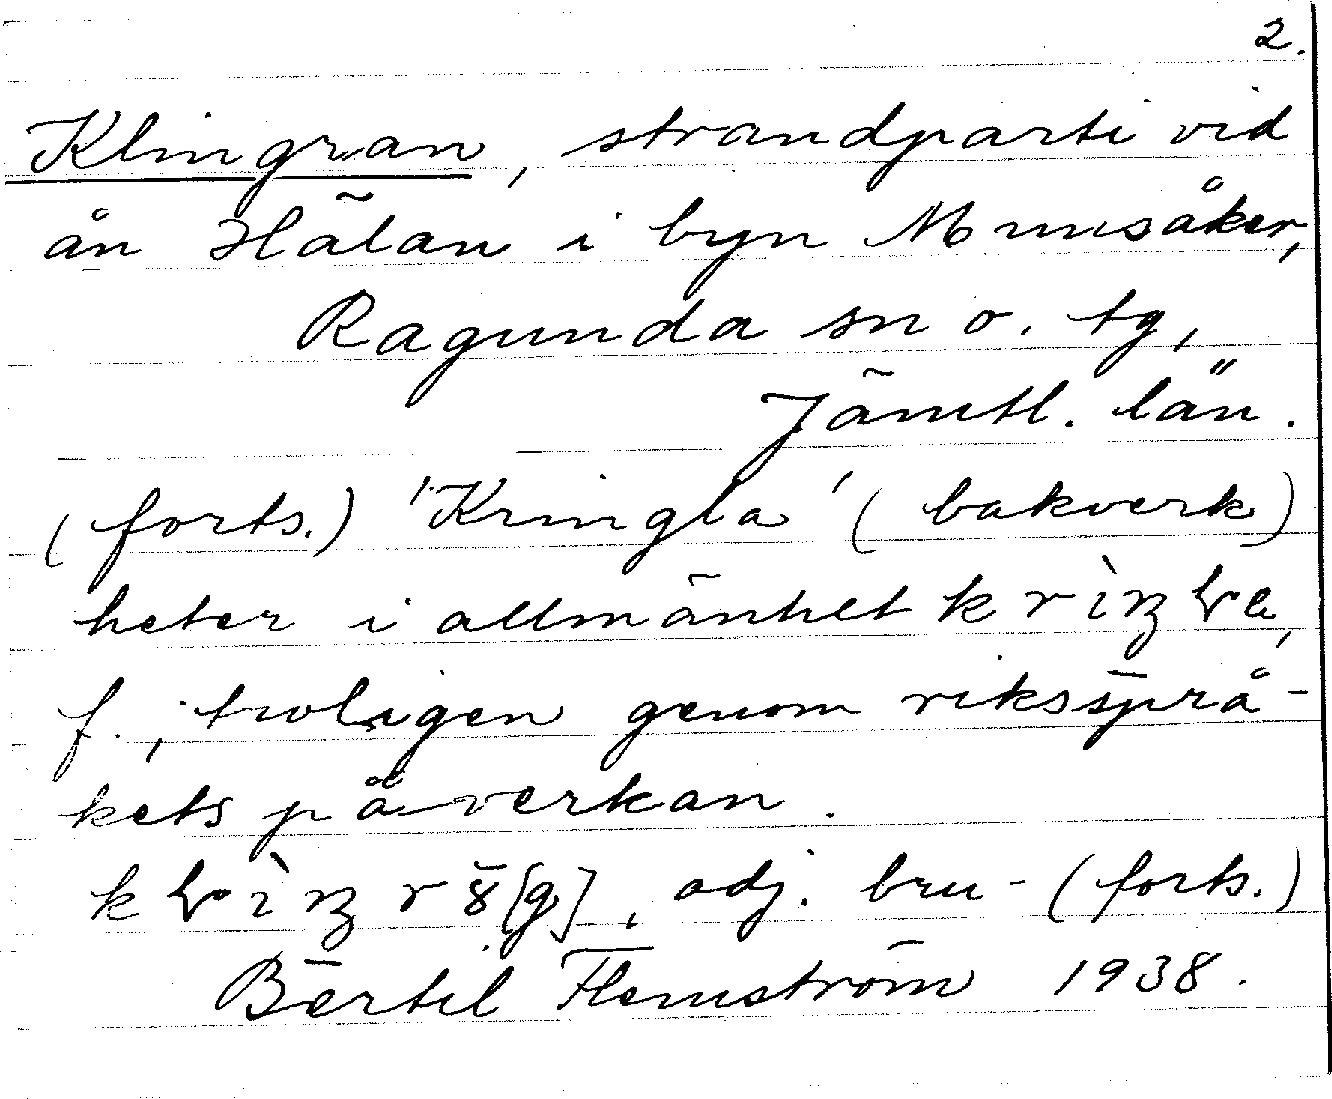 2.
Klingran, strandparti vid
ån Hälan i byn Munsåker,
Ragunda sn o. tg,
Jämtl. län.
(forts.) 'Kringla' (bakverk)
heter i allmänhet
f., troligen genom rikssprå-
kets påverkan.
adj. bru- (forts.)
Bertil Flemström 1938.